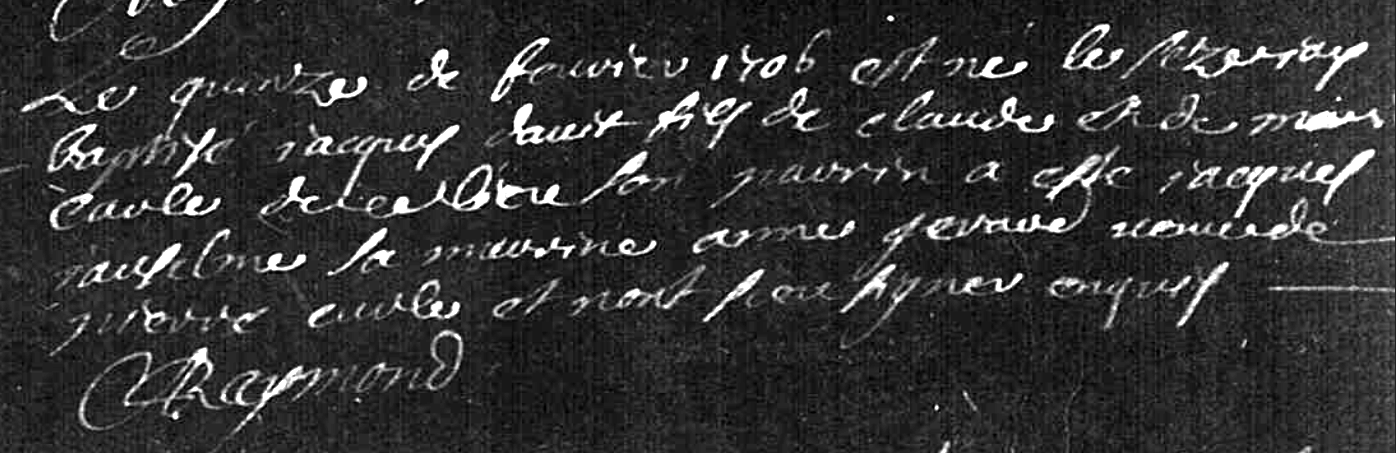 Le quinze de fevrier 1706 est né le setze a esté
baptisé jacques davit fils de claude et de marie
carle de ce lieu son parrin a esté jacques
anselme la marrine anne gerard veuve de
pierre carle et nont sceu signer enquis
Raymond